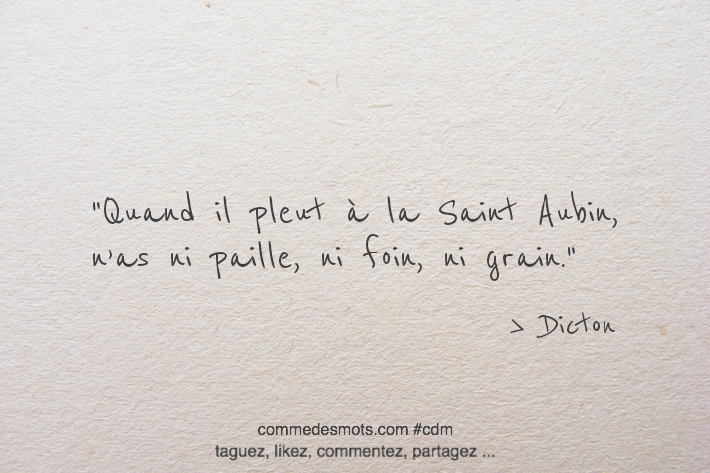 "Quand il pleut à la Saint Aubin,
n'as ni paille, ni foin, ni grain."
> Dicton
commedesmots.com #cdm
taguez, likez, commentez, partagez ...